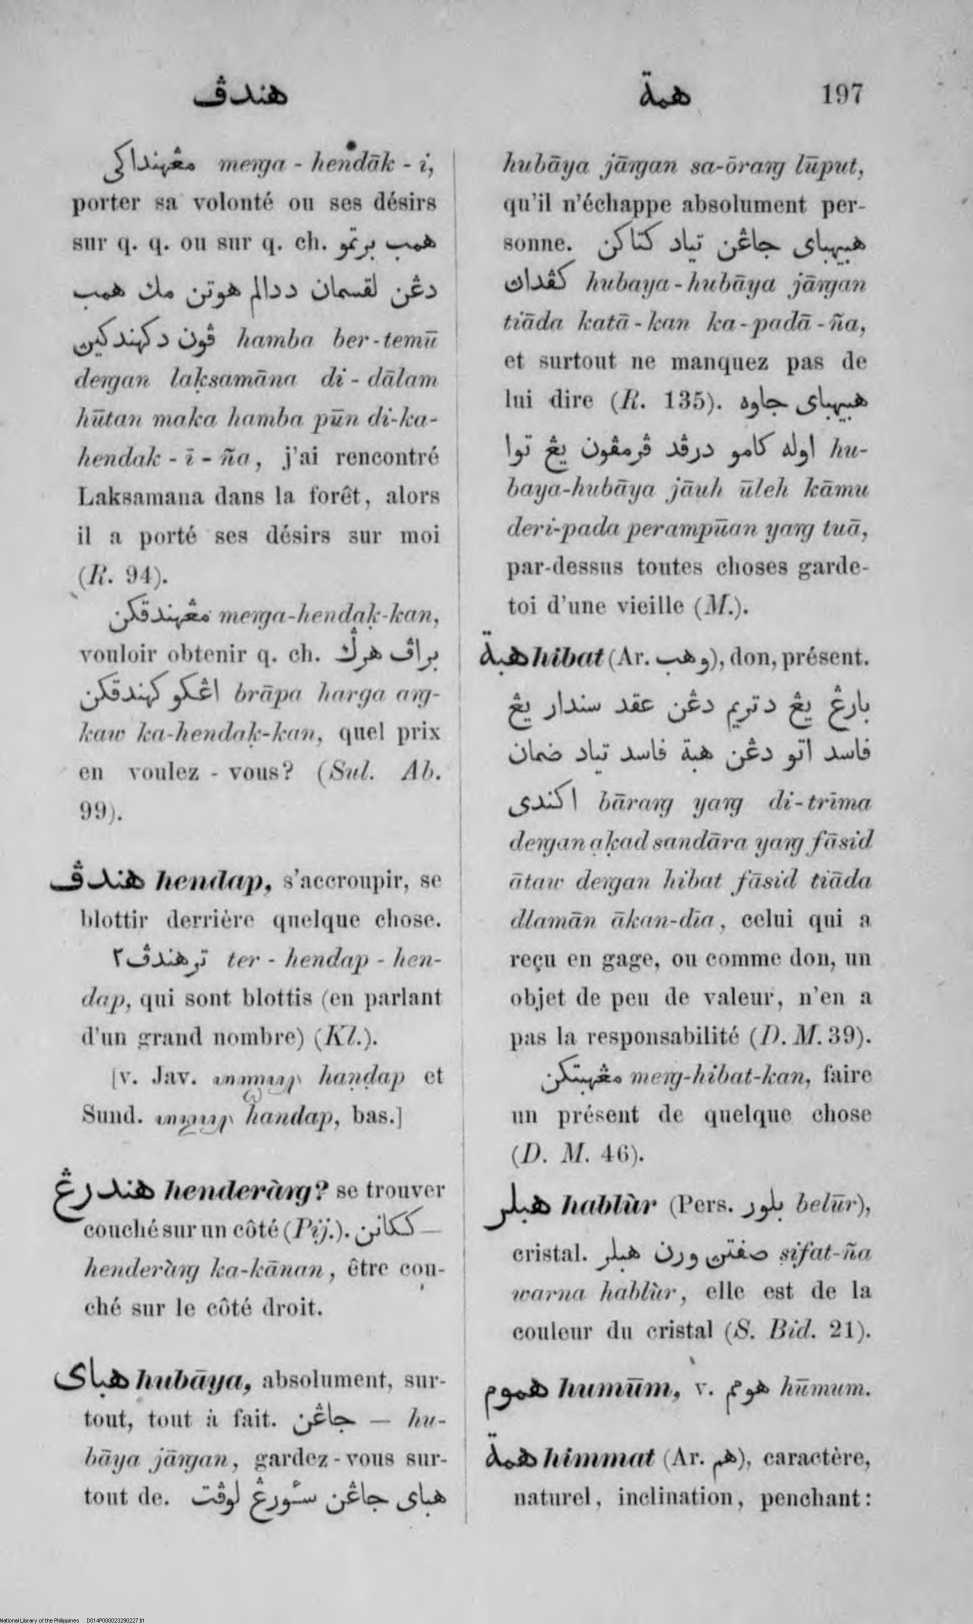 هندڤ
همة
197
مڠهنداکي merga-hendāk-i,
porter sa volonté ou ses désirs
sur q. q. ou sur q. ch. همب برتمو
دڠن لقسمان ددالم هوتن مك همب
ڤون دکهندکين hamba ber-temū
dergan laḳsamāna di-dālam
hūtan maka hamba pūn di-ka-
hendak-ī-ña, j'ai rencontré
Laksamana dans la forêt, alors
il a porté ses désirs sur moi
(R. 94).
مڠهندقکن merga-hendaḳ-kan,
vouloir obtenir q. ch. براڤ هرݢ
اڠکو کهندقکن brāpa harga arg-
kaw ka-hendaḳ-kan, quel prix
en voulez-vous? (Sul. Ab.
99).
هندڤ hendap, s'accroupir, se
blottir derrière quelque chose.
ترهندڤ٢ ter-hendap-hen-
dap, qui sont blottis (en parlant
d'un grand nombre) (Kl.).
[v. Jav. haṇḍap et
Sund. handap, bas.]
هندرڠ henderàrg? se trouver
couché sur un côté (Pij.). ککانن —
henderàrg ka-kānan, être cou-
ché sur le côté droit.
هباي hubāya, absolument, sur-
tout, tout à fait. جاڠن — hu-
bāya jārgan, gardez-vous sur-
tout de. هباي جاڠن سئورڠ لوڤت
hubāya jārgan sa-ōrarg lūput,
qu'il n'échappe absolument per-
sonne. هبيهباي جاڠن تياد کتاکن
کڤدان hubaya-hubāya jārgan
tiāda katā-kan ka-padā-ña,
et surtout ne manquez pas de
lui dire (R. 135). هبيهباي جاوه
اوله کامو درڤد ڤرمڤون يڠ توا hu-
baya-hubāya jāuh ūleh kāmu
deri-pada perampūan yarg tuā,
par-dessus toutes choses garde-
toi d'une vieille (M.).
هبة hibat (Ar. وهب), don, présent.
بارڠ يڠ دتريم دڠن عقد سندار يڠ
فاسد اتو دڠن هبة فاسد تياد ضمان
اکندي bārarg yarg di-trīma
dergan aḳad sandāra yarg fāsid
ātaw dergan hibat fāsid tiāda
dlamān ākan-dīa, celui qui a
reçu en gage, ou comme don, un
objet de peu de valeur, n'en a
pas la responsabilité (D. M. 39).
مڠهبتکن merg-hibat-kan, faire
un présent de quelque chose
(D. M. 46).
هبلر hablùr (Pers. بلور belūr),
cristal. صفتن ورن هبلر sifat-ña
warna hablùr, elle est de la
couleur du cristal (S. Bid. 21).
هموم humūm, v. هومم hūmum.
همة himmat (Ar. هم), caractère,
naturel, inclination, penchant:
National Library of the Philippines